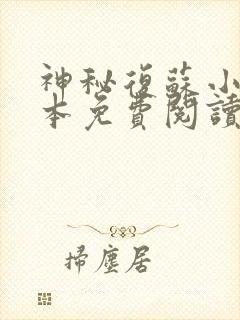 神秘復蘇小
本免費閱讀
掃塵居